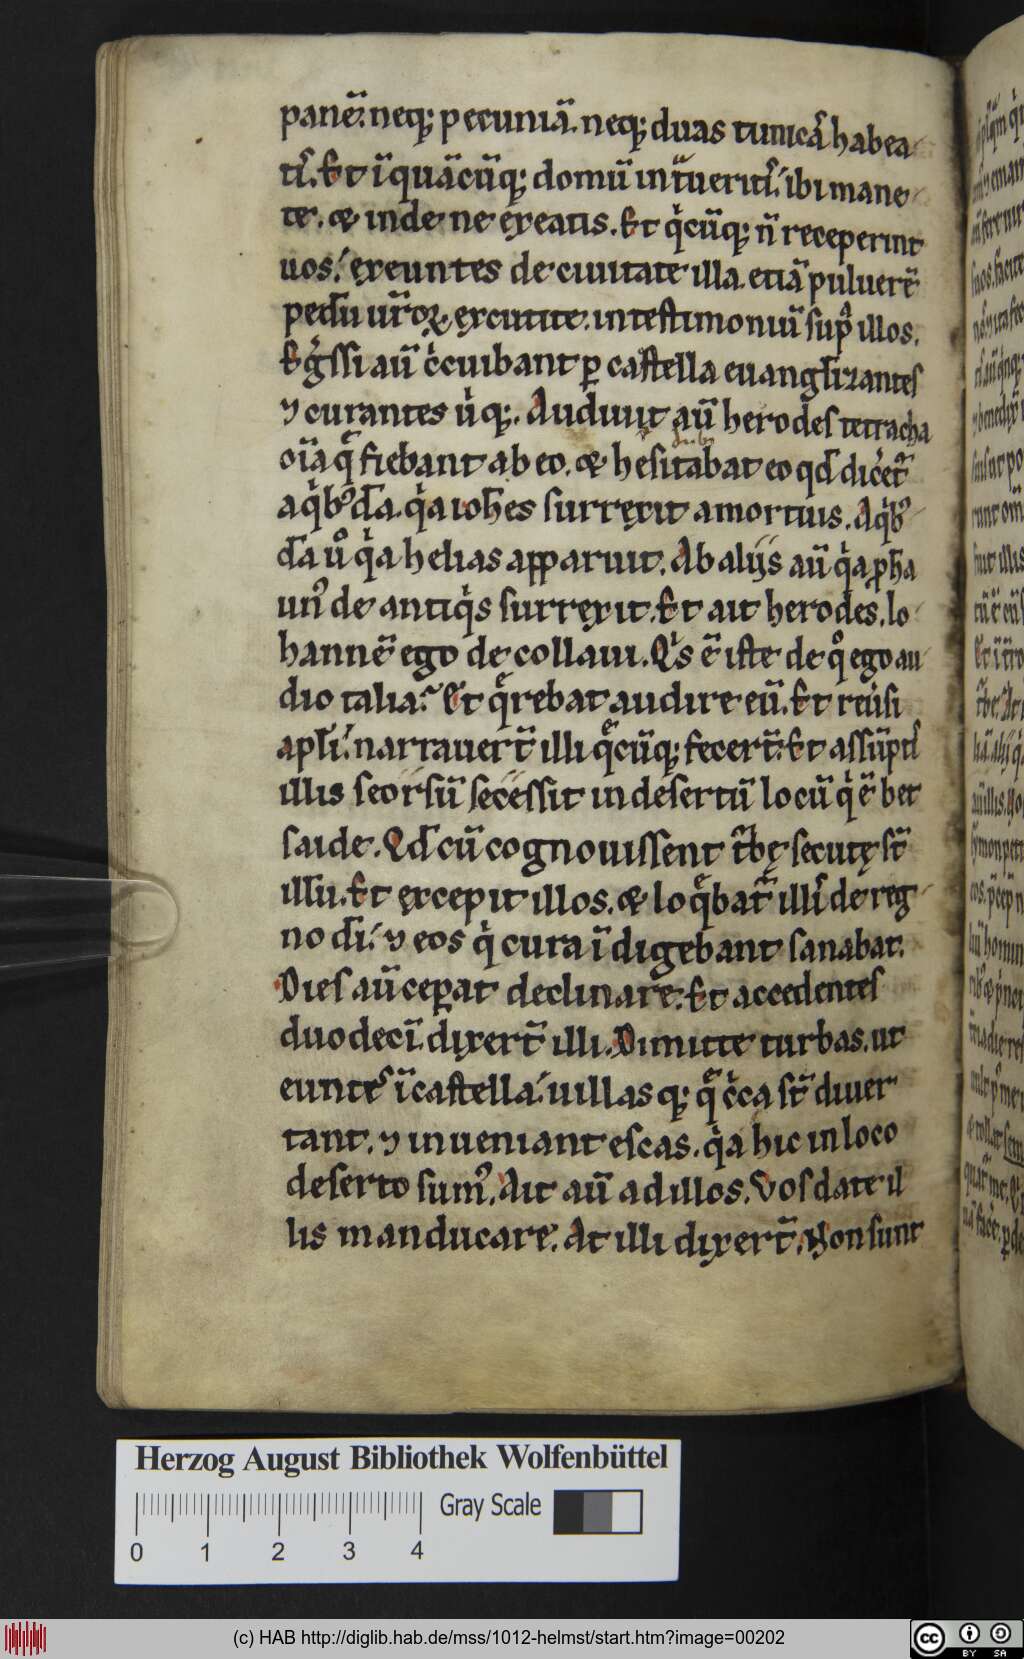 pane᷒. neq; pecuniā. neq; duas tunicā᷒ habea
ti᷒. Et ī quācūq; domū intūeriti᷒. ibi mane
te. & inde ne exeatis. Et qͥcūq; n̄ receperint
uos. exeuntes de ciuitate illa. etiā puluerē
pedū ur̄oꝝ excutite. in testimoniū supͣ illos.
Egͬssi aū cͥcuibant ꝑ castella euangl̄izantes
⁊ curantes uͥq;. Audiuit aū herodes tetracha
oīa qͣ fiebant ab eo. & hesitabat eo qd̄ dicͤet᷑
a qͥbꝰdā. qͥa ioh̄es surrexit a mortuis. A qͥbꝰ
dā uͦ qͥa helias apparuit. Ab alijs aū qͥa ꝓph̄a
unꝰ de antiqͥs surrexit. Et ait herodes. Io
hannē ego decollaui. Qͥs ē iste de qͦ ego au
dio talia? Et qͤrebat audire eū. Et reuͥsi
apl̄i. narrauert̄ illi qͤcūq; fecert̄. Et assūptꝭ
illis seorsū secessit in desertū locū qͥ ē bet
saide. Qd̄ cū cognouissent t̄bę secutę st̄
illū. Et excepit illos. & loqͤbat᷑ illiꝭ de reg
no dī. ⁊ eos qͥ cura īdigebant sanabat.
Dies aū ceperat declinare. Et accedentes
duodecī. dixert̄ illi. Dimitte turbas. ut
eunteꝭ ī castella. uillasq; qͤ cͥca st̄ diuer
tant. ⁊ inueniant escas. qͥa hic in loco
deserto sumꝰ. Ait aū ad illos. Vos date il
lis manducare. At illi dixert̄. Non sunt
Herzog August Bibliothek Wolfenbüttel
Gray Scale
0 1 2 3 4
(c) HAB http://diglib.hab.de/mss/1012-helmst/start.htm?image=00202
cc BY SA